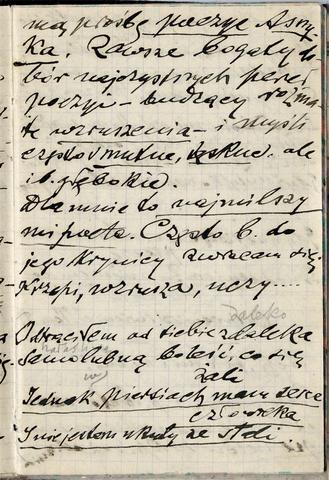 mą prośbę poezje Asny-
ka. Zawsze bogaty do-
bór najczystszych pereł
poezji – budzący rozma-
te wzruszenia – i myśli
często smutne, tęskne. ale
i b. głębokie.
Dla mnie to najmilszy
mi poeta. Często b. do
jego skrynicy zwracam się,
Krzepi, wzrusza, uczy....
daleko
Odrzuciłem od siebie zdaleka
Samolubną boleść, co się
żali
Jednak piersiach mam serce
człowieka
I nie jestem wykuty ze stali.